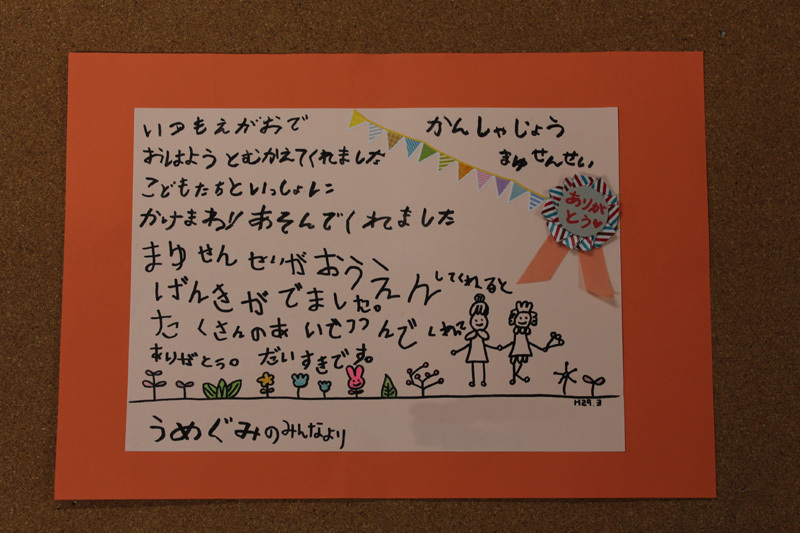 かんしゃじょう
まゆせんせい
ありが
とう♥
いつもえがおで
おはようとむかえてくれました
こどもたちといっしょに
かけまわりあそんでくれました
まゆせんせいがおうえんしてくれると
げんきがでました。
たくさんのあいでつつんでくれて
ありがとう。だいすきです。
H29.3
うめぐみのみんなより